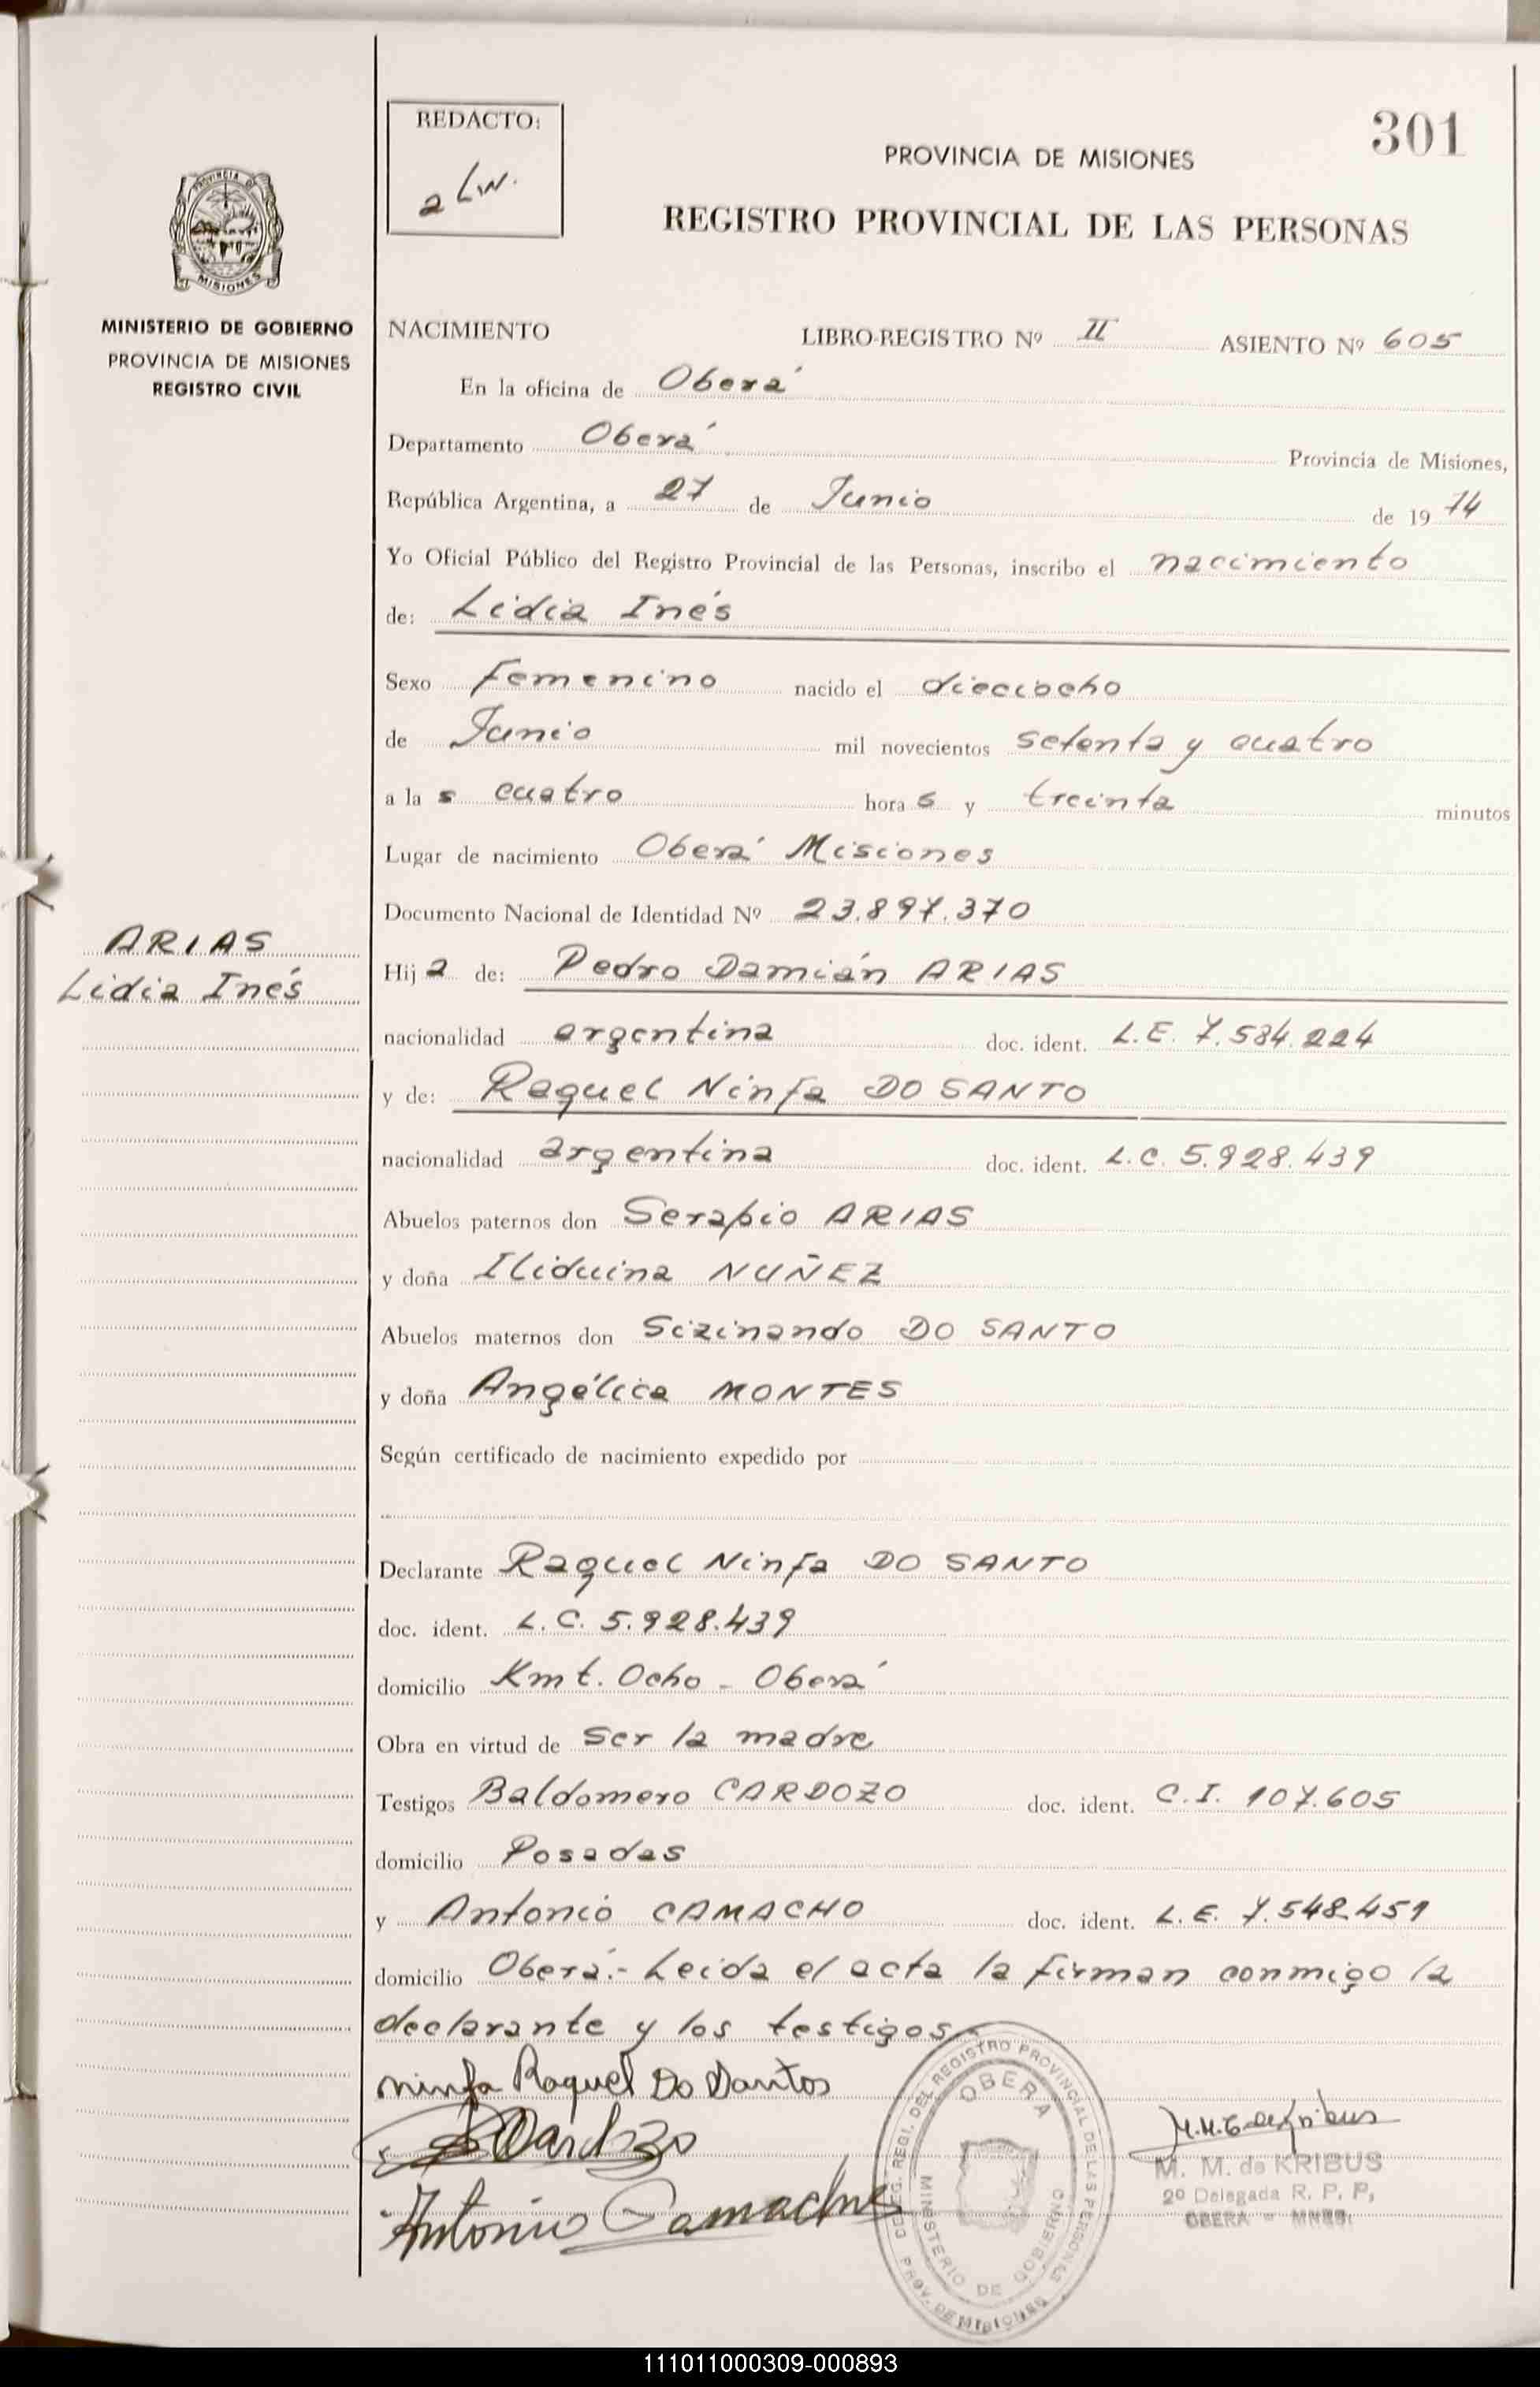 REDACTO:
301
PROVINCIA DE MISIONES
REGISTRO PROVINCIAL DE LAS PERSONAS
PROVINCIA DE
MISIONES
MINISTERIO DE GOBIERNO
PROVINCIA DE MISIONES
REGISTRO CIVIL
NACIMIENTO LIBRO-REGISTRO Nº II ASIENTO Nº 605
En la oficina de Oberá
Departamento Oberá Provincia de Misiones,
República Argentina, a 27 de Junio de 1974
Yo Oficial Público del Registro Provincial de las Personas, inscribo el nacimiento
de: Lidia Inés
Sexo Femenino nacido el dieciocho
de Junio mil novecientos setenta y cuatro
a las cuatro horas y treinta minutos
Lugar de nacimiento Oberá Misiones
Documento Nacional de Identidad Nº 23.897.370
ARIAS
Lidia Inés
Hija de: Pedro Damián ARIAS
nacionalidad argentina doc. ident. L.E. 7.584.224
y de: Raquel Ninfa DO SANTO
nacionalidad argentina doc. ident. L.C. 5.928.439
Abuelos paternos don Serapio ARIAS
y doña Iliduina NUÑEZ
Abuelos maternos don Sizinando DO SANTO
y doña Angélica MONTES
Según certificado de nacimiento expedido por
Declarante Raquel Ninfa DO SANTO
doc. ident. L.C. 5.928.439
domicilio Kmt. Ocho - Oberá
Obra en virtud de ser la madre
Testigos Baldomero CARDOZO doc. ident. C.I. 107.605
domicilio Posadas
y Antonio CAMACHO doc. ident. L.E. 7.548.451
domicilio Oberá.- Leida el acta la firman conmigo la
declarante y los testigos.-
ninfa Raquel Do Santos
BCardozo
Antonio Camacho
REGI. DEL REGISTRO PROVINCIAL DE LAS PERSONAS
OBERA
MINISTERIO DE GOBIERNO
PROV. DE MISIONES
M. M. de KRIBUS
2º Delegada R. P. P.
OBERA - MNES.
111011000309-000893